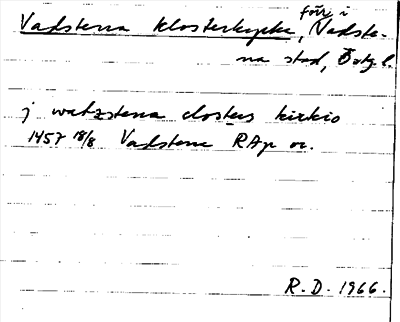 Vadstena klosterkyrka, förr i Vadste-
na stad, Östg.l.
j watzstena closters kirkio
1457 18/8 Vadstena RAp or.
R.D. 1966.